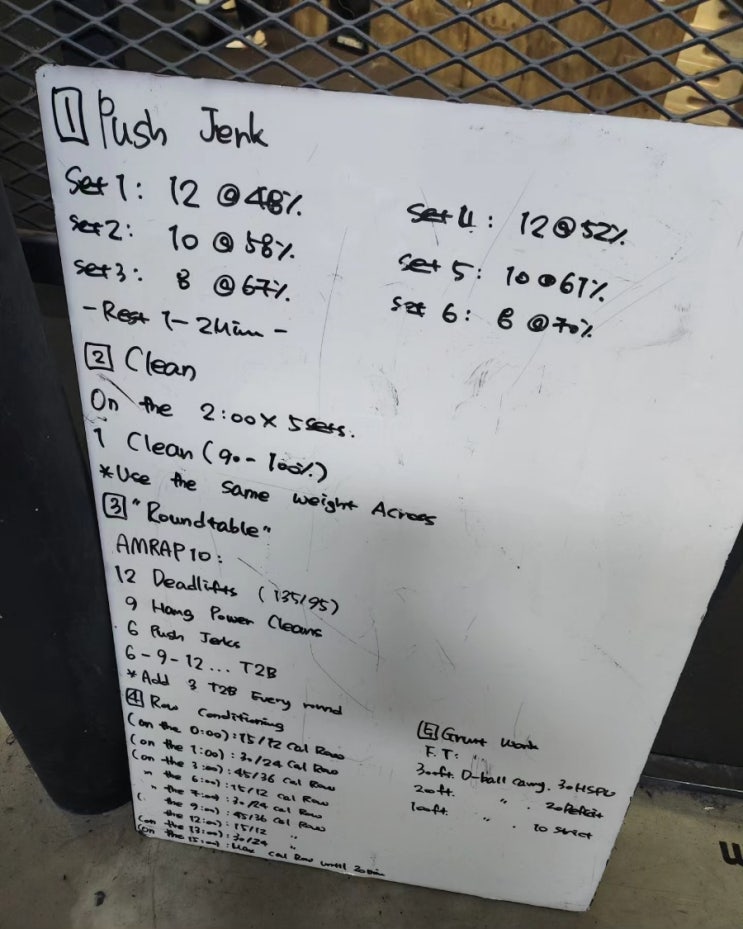 1 Push Jerk
Set 1: 12 @ 48%
Set 2: 10 @ 58%
Set 3: 8 @ 67%
- Rest 1-2Min -
Set 4: 12 @ 52%
Set 5: 10 @ 61%
Set 6: 8 @ 70%
2 Clean
On the 2:00 X 5 sets.
1 Clean (90-100%)
*Use the same weight Across
3 "Roundtable"
AMRAP 10:
12 Deadlifts (135/95)
9 Hang Power Cleans
6 Push Jerks
6-9-12... T2B
*Add 3 T2B Every round
4 Row Conditioning
(on the 0:00): 15/12 Cal Row
(on the 1:00): 30/24 Cal Row
(on the 3:00): 45/36 Cal Row
" the 6:00): 15/12 Cal Row
" the 7:00): 30/24 Cal Row
(. the 9:00): 45/36 Cal Row
(on the 12:00): 15/12 "
(on the 13:00): 30/24 "
(on the 15:00): Max Cal Row until 20min
5 Grunt Work
F.T:
300ft. D-ball carry. 30HSPU
200ft. " . 20 Deficit
100ft. " . 10 strict